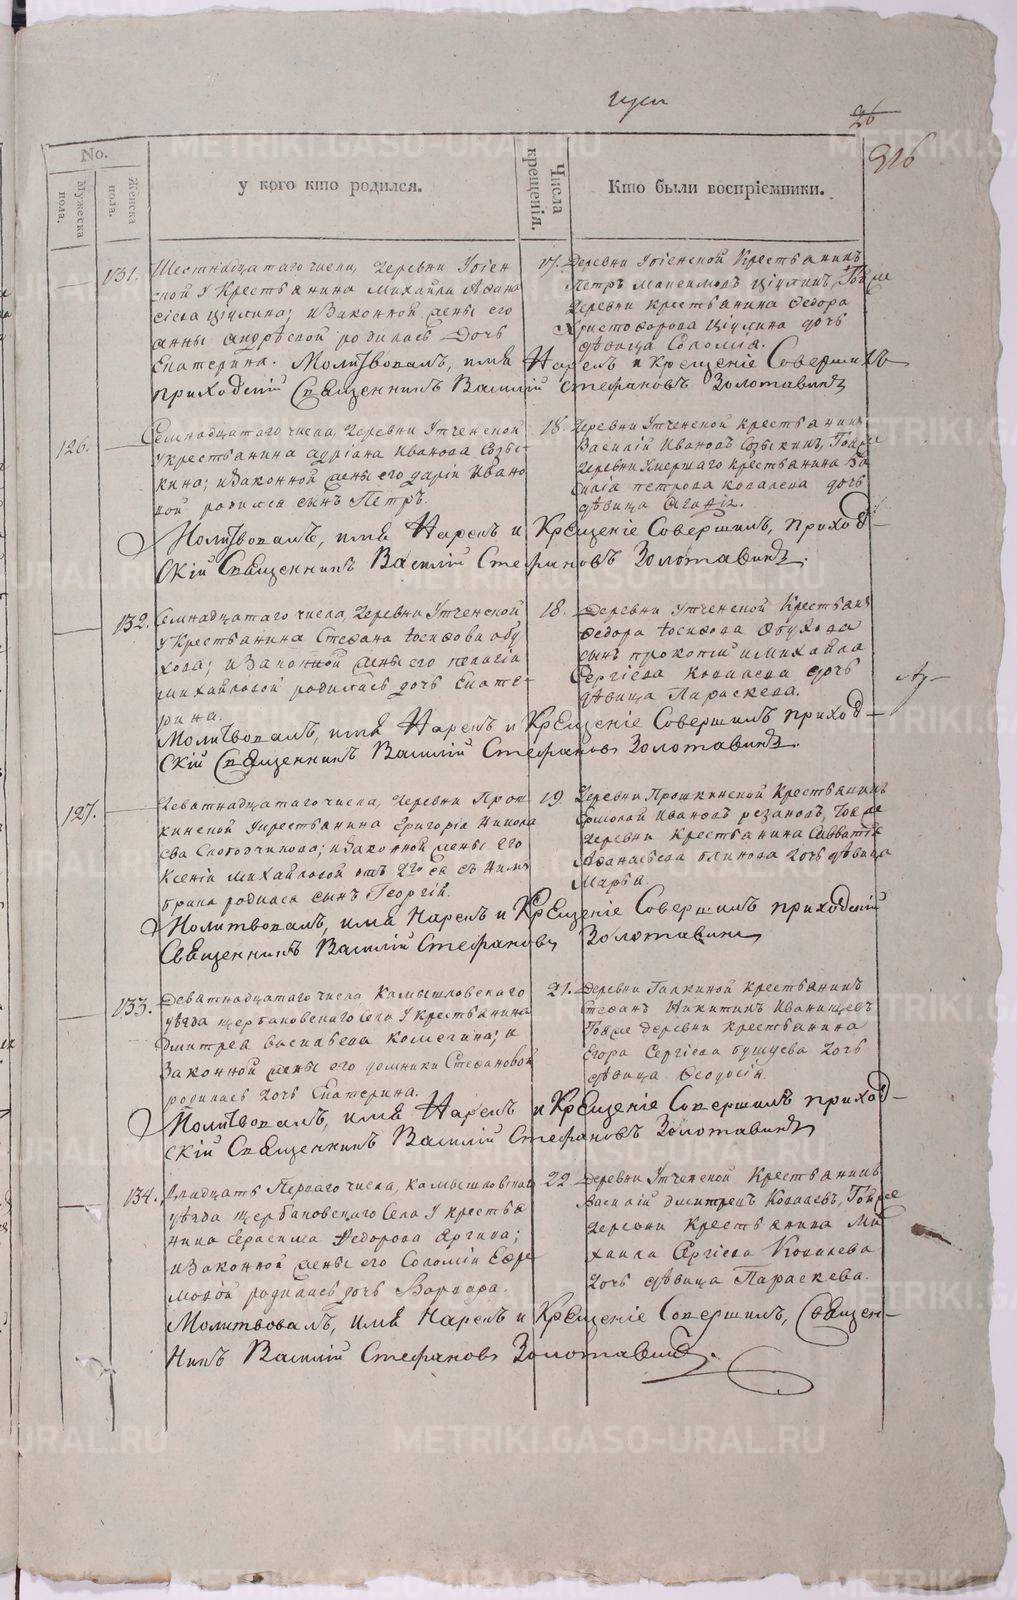 No.
Мужеска пола.
Женска пола.
у кого кто родился.
Числа крещенія.
Кто были воспріемники.
131.
Шестнадцатаго числа, деревни
ской у Крестьянина Михайла Афана
сіева Ціулина; и Законной жены его
Анны Андреевой родилась Дочь
Екатерина. Молитвовалъ, имя Нарекъ и Крещеніе Совершилъ
приходскій Священникъ Василій Стефановъ Золотавинъ
17. Деревни Крестьянинъ
Петръ Максимовъ Ціулинъ, Тойже
деревни крестьянина Федора
Христофорова Ціулина дочь
девица Соломія.
126.
Семнадцатаго числа, деревни Утченской
у крестьянина Адріана Иванова Созы-
кина; и Законной жены его Дарьи Ивано
вой родился сынъ Петръ.
Молитвовалъ, имя Нарекъ и Крещеніе Совершилъ, приход-
скій Священникъ Василій Стефановъ Золотавинъ.
18. Деревни Утченской крестьянинъ
Василій Ивановъ Созыкинъ, Тойже
деревни Умершаго крестьянина Ва
силія Петрова Ковалева дочь
девица Агафія.
132.
Семнадцатаго числа, Деревни Утченской
у Крестьянина Стефана Іосифова Обу
хова; и Законной жены его Пелагіи
Михайловой родилась дочь Екате-
рина.
Молитвовалъ, имя Нарекъ и Крещеніе Совершилъ приход-
скій Священникъ Василій Стефановъ Золотавинъ.
18. Деревни Утченской Крестьян
Федора Іосифова Обухова
сынъ Прокопій и Михайла
Сергіева Ковалева дочь
девица Параскева.
127.
Девятнадцатаго числа, деревни Прош
кинской у крестьянина Григорія Никола
ева Слободчикова; и Законной жены его
Ксеніи Михайловой отъ
родился сынъ Георгій.
Молитвовалъ, имя Нарекъ и Крещеніе Совершилъ приходскій
Священникъ Василій Стефановъ Золотавинъ
19. Деревни Прошкинской Крестьянинъ
Ермолай Ивановъ Резановъ, Тойже
деревни Крестьянина Савватія
Афанасьева Блинова дочь девица
Марфа.
133.
Девятнадцатаго числа, Камышловскаго
уезда Щербаковскаго Села у крестьянина
Дмитрея Васильева Комягина; и
Законной жены его Домники Стефановой
родилась дочь Екатерина.
Молитвовалъ, имя Нарекъ и Крещеніе Совершилъ приход-
скій Священникъ Василій Стефановъ Золотавинъ
21. Деревни Галкиной крестьянинъ
Стефанъ Никитинъ Иванищевъ
Тойже деревни крестьянина
Егора Сергіева Бушуева дочь
девица Феодосія.
134.
Двадцать Перваго числа, Камышловскаго
уезда Щербаковскаго Села у крестья
нина Герасима Федорова Аргина;
и Законной жены его Соломіи Ефре
мовой родилась дочь Варвара.
Молитвовалъ, имя Нарекъ и Крещеніе Совершилъ, Священ-
никъ Василій Стефановъ Золотавинъ.
22. Деревни Утченской Крестьянинъ
Василій Дмитрѣевъ Ковалевъ, Тойже
деревни крестьянина Ми
хаила Сергіева Ковалева
дочь девица Параскева.
METRIKI.GASO-URAL.RU